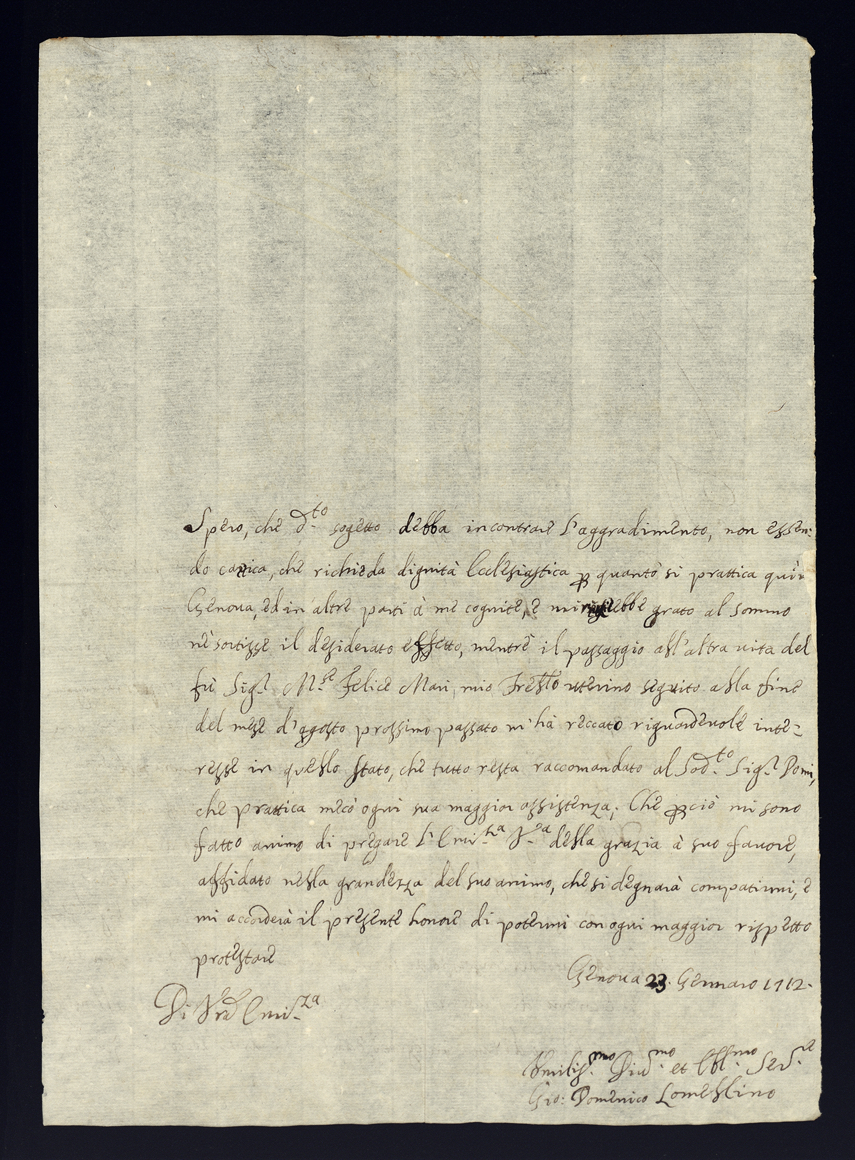 Spero, che d.to sogetto debba incontrare l'aggradimento, non essen:
do carica, che richieda dignità Ecclesiastica p quanto si prattica qui in
Genova, ed in altre parti à me cognite, e mi grato al sommo
ne sortisse il desiderato effetto, mentre il passaggio all'altra vita del
fù Sig.r M.se Felice Mari, mio Fratello uterino seguito alla fine
del mese d'agosto prossimo passato m'hà reccato riguardevole inte:
resse in quello Stato, che tutto resta raccomandato al Sod.to Sig.r Domi,
che prattica meco ogni sua maggior assistenza; Che pciò mi sono
fatto animo di pregare l'Emi.za V.ra della grazia à suo favore,
affidato nella grandezza del suo animo, che si degnarà compatirmi, e
mi accorderà il presente honore di potermi con ogni maggior rispetto
protestare
Genova 23. Gennaro 1712.
Di Vra Emi.za
Umiliss.mo Div.mo et Obl.mo Ser.re
Gio: Domenico Lomellino